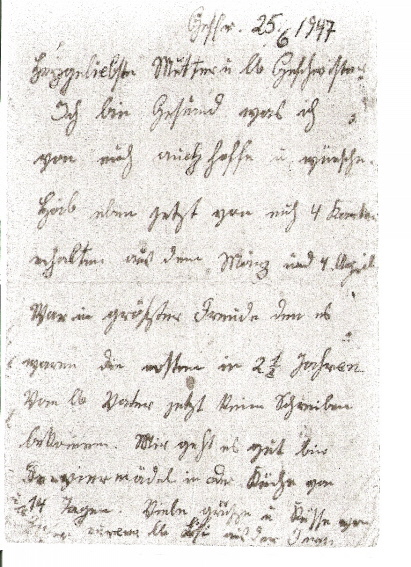 Geschr. 25/6 1947
Herzgeliebste Mutter u lb Geschwister
Ich bin Gesund was ich
von euch auch hoffe u. wünsche.
Hab eben jetzt von euch 4 Karten
erhalten aus dem März und 4. April
War in größter Freude den es
waren die ersten in 2½ Jahren
Von lb Vater jetzt kein Schreiben
bekommen. Mir geht es gut bin
Serviermädel in der Küche von
14 Tagen. Viele grüße u Küsse von
eurem lb aus der